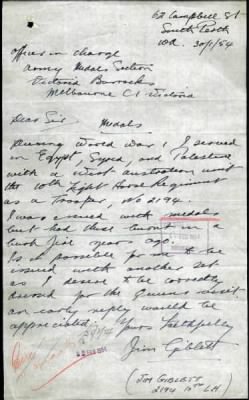 62 Campbell St
South Perth
WA. 30/1/54
Officer in Charge
Army Medals Section
Victoria Barracks
Melbourne C1 Victoria
Dear Sir
Medals
During World War 1 I served
in Egypt, Syria, and Palestine
with a West Australian unit
the 10th Light Horse Regiment
as a Trooper, No 2194.
I was issued with medals
but had them burnt in a
bush fire years ago.
Is it possible for me to be
issued with another set
as I desire to be correctly
dressed for the Queens visit
an early reply would be
appreciated. Yours Faithfully
Jim Giblett
(Jim Giblett
2194 10th LH)